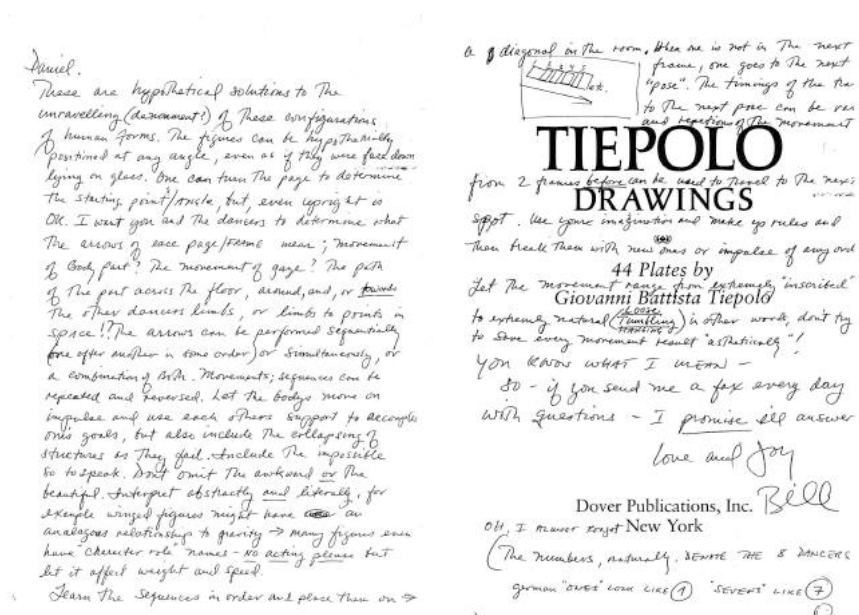 Daniel.
These are hypothetical solutions to the
unravelling (denoument?) of these configurations
of human forms. The figures can be hypothetically
positioned at any angle, even as if they were face down
lying on glass. One can turn the page to determine
the starting point/angle, but, even upright is
OK. I want you and the dancers to determine what
the arrows of each page/frame mean; movement
of Body part? The movement of gaze? The path
of the part across the floor, around, and, or towards
the other dancers limbs, or limbs to points in
space!? The arrows can be performed sequentially
(one after another in some order) or simultaneously, or
a combination of Both. Movements; sequences can be
repeated and reversed. Let the bodys move on
impulse and use each others support to accomplish
ones goals, but also include the collapsing of
structures as they fail. Include the impossible
so to speak. Don't omit the awkward or the
beautiful. Interpret abstractly and literally, for
example winged figures might have an
analogous relationship to gravity → many figures even
have "character role" names - No acting please but
let it affect weight and speed.
Learn the sequences in order and place them on →
a diagonal in the room. When one is not in the next
frame, one goes to the next
1 2 3 4 5
etc.
"pose". The timings of the tra
to the next pose can be
and repetions of the movement
TIEPOLO
from 2 frames before can be used to travel to the next
DRAWINGS
spot. Use your imagination and make up rules and
then break them with new ones or impulse of any
44 Plates by
Let the movement range from extremely "inscribed"
Giovanni Battista Tiepolo
loose
to extremely natural (Tumbling) in other words, don't try
to save every movement result "asthetically"!
YOU KNOW WHAT I MEAN -
So - if you send me a fax every day
with questions - I promise ill answer
love and Joy
Bill
Dover Publications, Inc.
OH, I ALMOST forgot
New York
(The numbers, naturally. DENOTE THE 8 DANCERS
german "ONES" LOOK LIKE 1 "SEVENS" LIKE 7